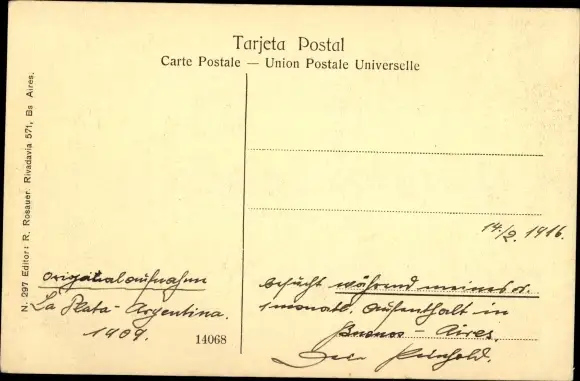 Tarjeta Postal
Carte Postale — Union Postale Universelle
N. 297 Editor: R. Rosauer. Rivadavia 571, Bs Aires.
14./2. 1916.
Originalaufnahm
La Plata - Argentina.
1909.
14068
besucht während meines
monatl. Aufenthalt in
Buenos - Aires.
Reinhold.